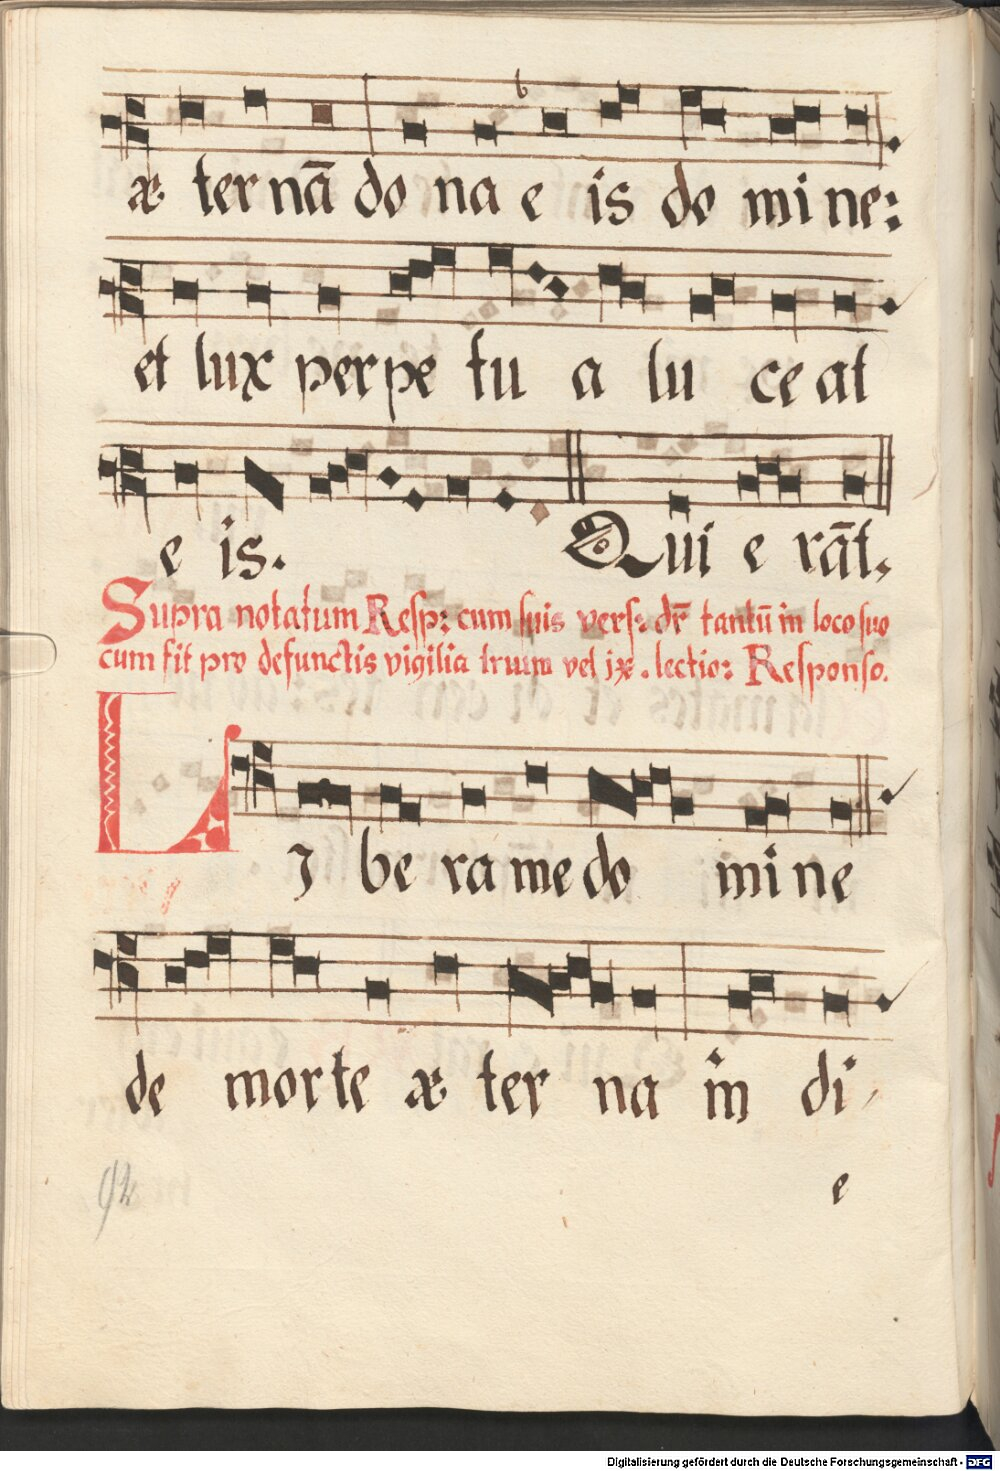 æ ternā do na e is do mi ne:
et lux perpe tu a lu ce at
e is. Qui e rāt.
Supra notatum Resp: cum suis vers: dr̄ tantū in loco suo
cum fit pro defunctis vigilia trium vel ix. lectio: Responso.
LI be ra me do mi ne
de morte æ ter na in di
e
92
Digitalisierung gefördert durch die Deutsche Forschungsgemeinschaft - DFG